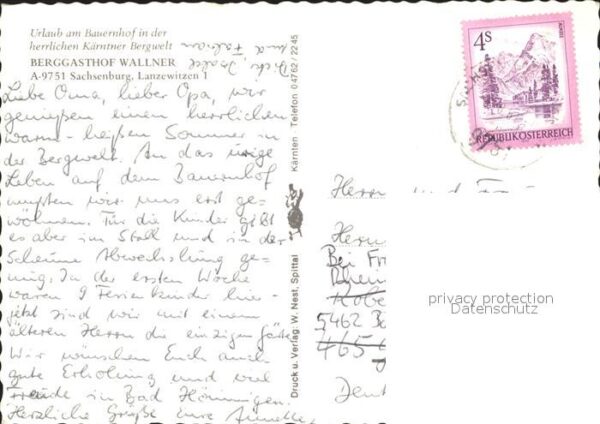 Urlaub am Bauernhof in der
herrlichen Kärntner Bergwelt
BERGGASTHOF WALLNER
A-9751 Sachsenburg, Lanzewitzen 1
Liebe Oma, lieber Opa, wir
genießen einen herrlichen
warm-heißen Sommer in
der Bergwelt. An das urige
Leben auf dem Bauernhof
mußten wir uns erst ge-
wöhnen. Für die Kinder gibt
es aber im Stall und in der
Scheune Abwechslung ge-
nug. In der ersten Woche
waren 9 Ferienkinder hier -
jetzt sind wir mit einem
älteren Herrn die einzigen Gäste.
Wir wünschen Euch auch
gute Erholung und viel
Freude in Bad Hönningen.
Herzliche Grüße Eure Annette,
Druck u. Verlag: W. Nest, Spittal
Kärnten
Telefon 0 47 62 / 22 45
4S
REPUBLIK ÖSTERREICH
Herrn und
Herrn
Bei
Rhein
5462
465
privacy protection
Datenschutz